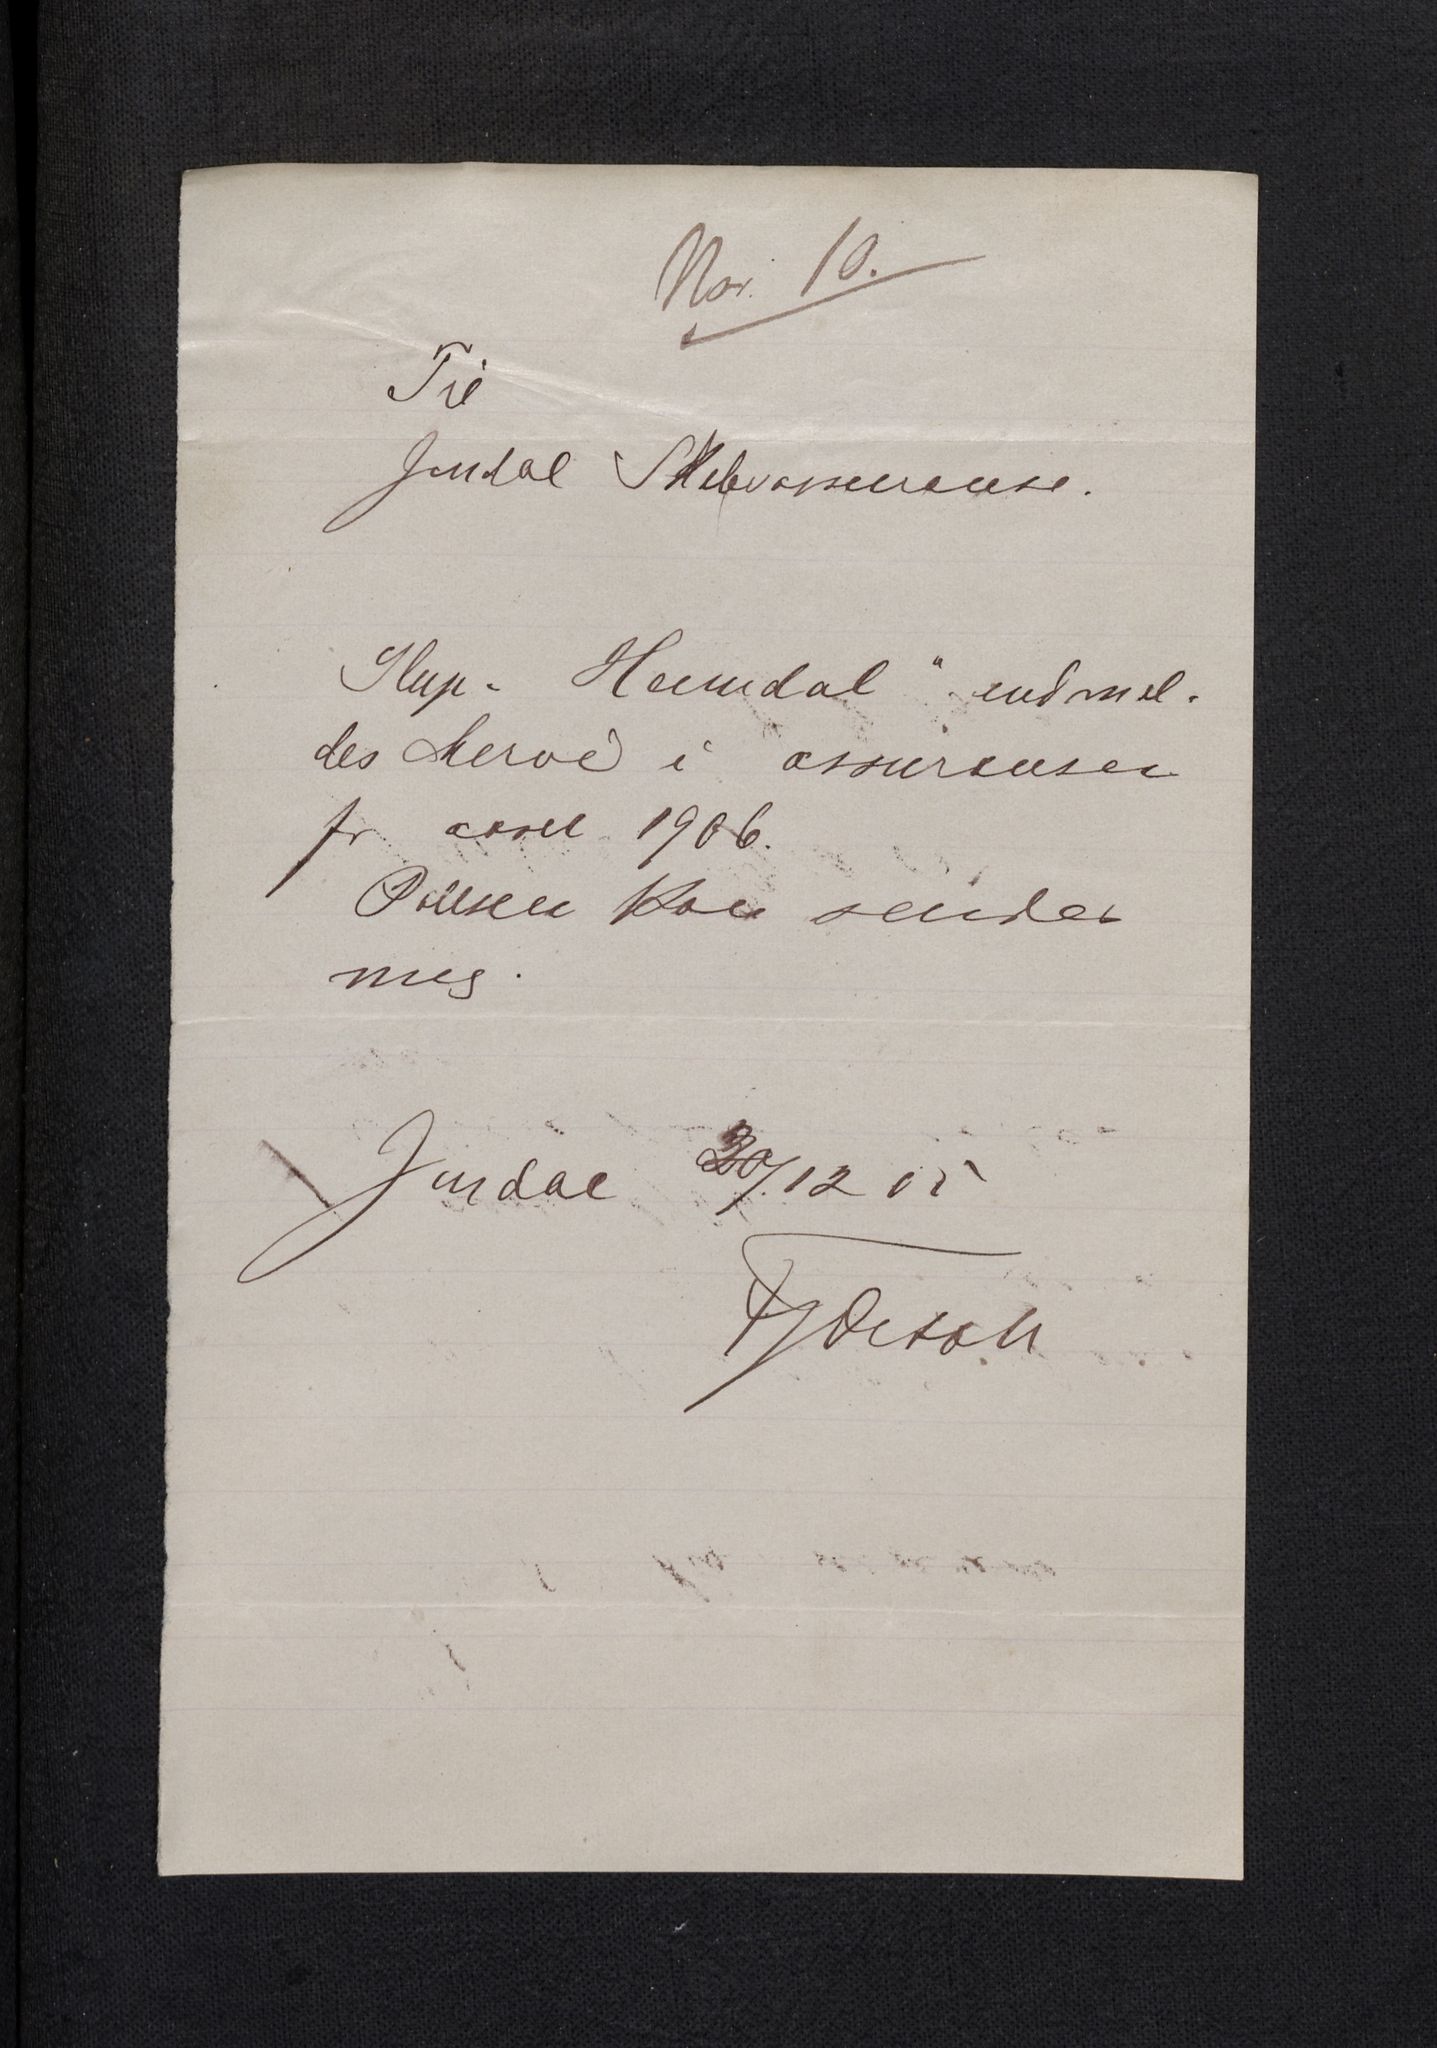 Nor. 10.
Til
Jondal Skibsassuranse.
Slup. Heimdal " indmel-
des herved i assuransen
for aaret 1906.
Polisen kan sendes
meg.
Jondal 30/12 05